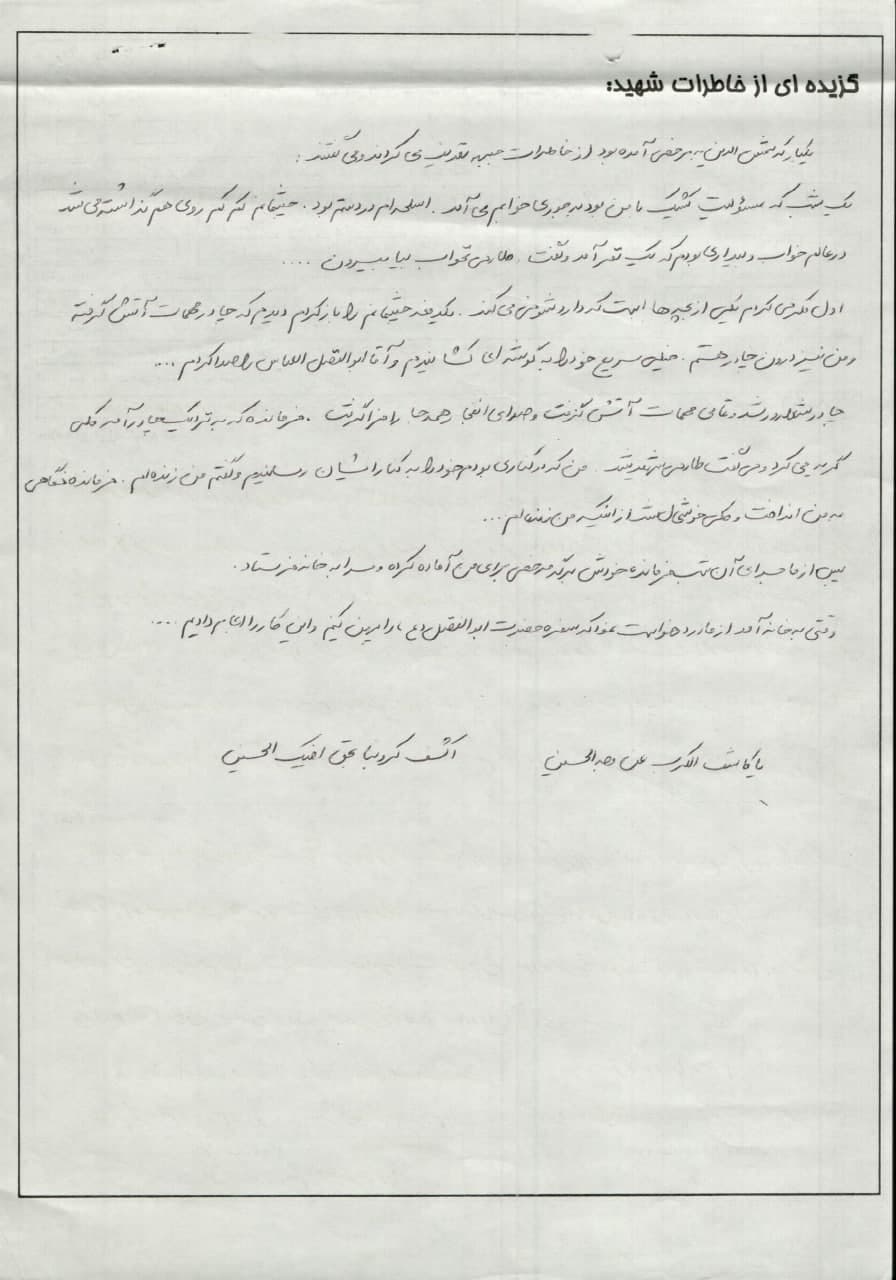 گزیده ای از خاطرات شهید:
یکبار که شمس الدین به مرخصی آمده بود از خاطرات جبهه تعریف می کردند و می گفتند:
یک شب که مسئولیت کشیک با من بود بدجوری خوابم می آمد. اسلحه ام در دستم بود. چشمانم کم کم روی هم گذاشته می شد
در عالم خواب و بیداری بودم که یک نفر آمد و گفت. طارمی نخواب بیا بیرون ....
اول فکر می کردم یکی از بچه ها است که دارد شوخی می کند. یکدفعه چشمانم را باز کردم دیدم که چادر مهمات آتش گرفته
و من نیز درون چادر هستم. خیلی سریع خود را به گوشه ای کشانیدم و آقا ابوالفضل العباس را صدا کردم ...
چادر شعله ور شد و تمامی مهمات آتش گرفت و صدای انفجار همه جا را فرا گرفت. فرمانده که به نزدیک چادر آمد خیلی
گریه می کرد و می گفت طارمی شهید شد. من که در کناری بودم خود را به کنار ایشان رسانیدم و گفتم من زنده ام. فرمانده نگاهی
به من انداخت و خیلی خوشحال شد از اینکه من زنده ام ...
پس از ماجرای آن شب فرمانده خودش برگه مرخصی برای من آماده کرده و مرا به خانه فرستاد.
وقتی به خانه آمد از مادرم خواست که سفره حضرت ابوالفضل (ع) را مزین کنیم و این کار را انجام دادیم ....
یا کاشف الکرب عن وجه الحسین
اکشف کروبنا بحق اخیک الحسین